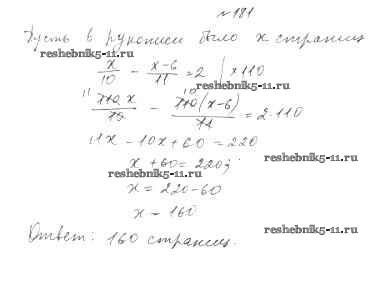 №181
Пусть в рукописи было x страниц
reshebnik5-11.ru
x/10 - (x-6)/11 = 2 | ×110
reshebnik5-11.ru
11 110 x/10 - 10 110(x-6)/11 = 2·110
11x - 10x + 60 = 220
x + 60 = 220;
reshebnik5-11.ru
reshebnik5-11.ru
x = 220-60
x = 160
reshebnik5-11.ru
Ответ: 160 страниц.